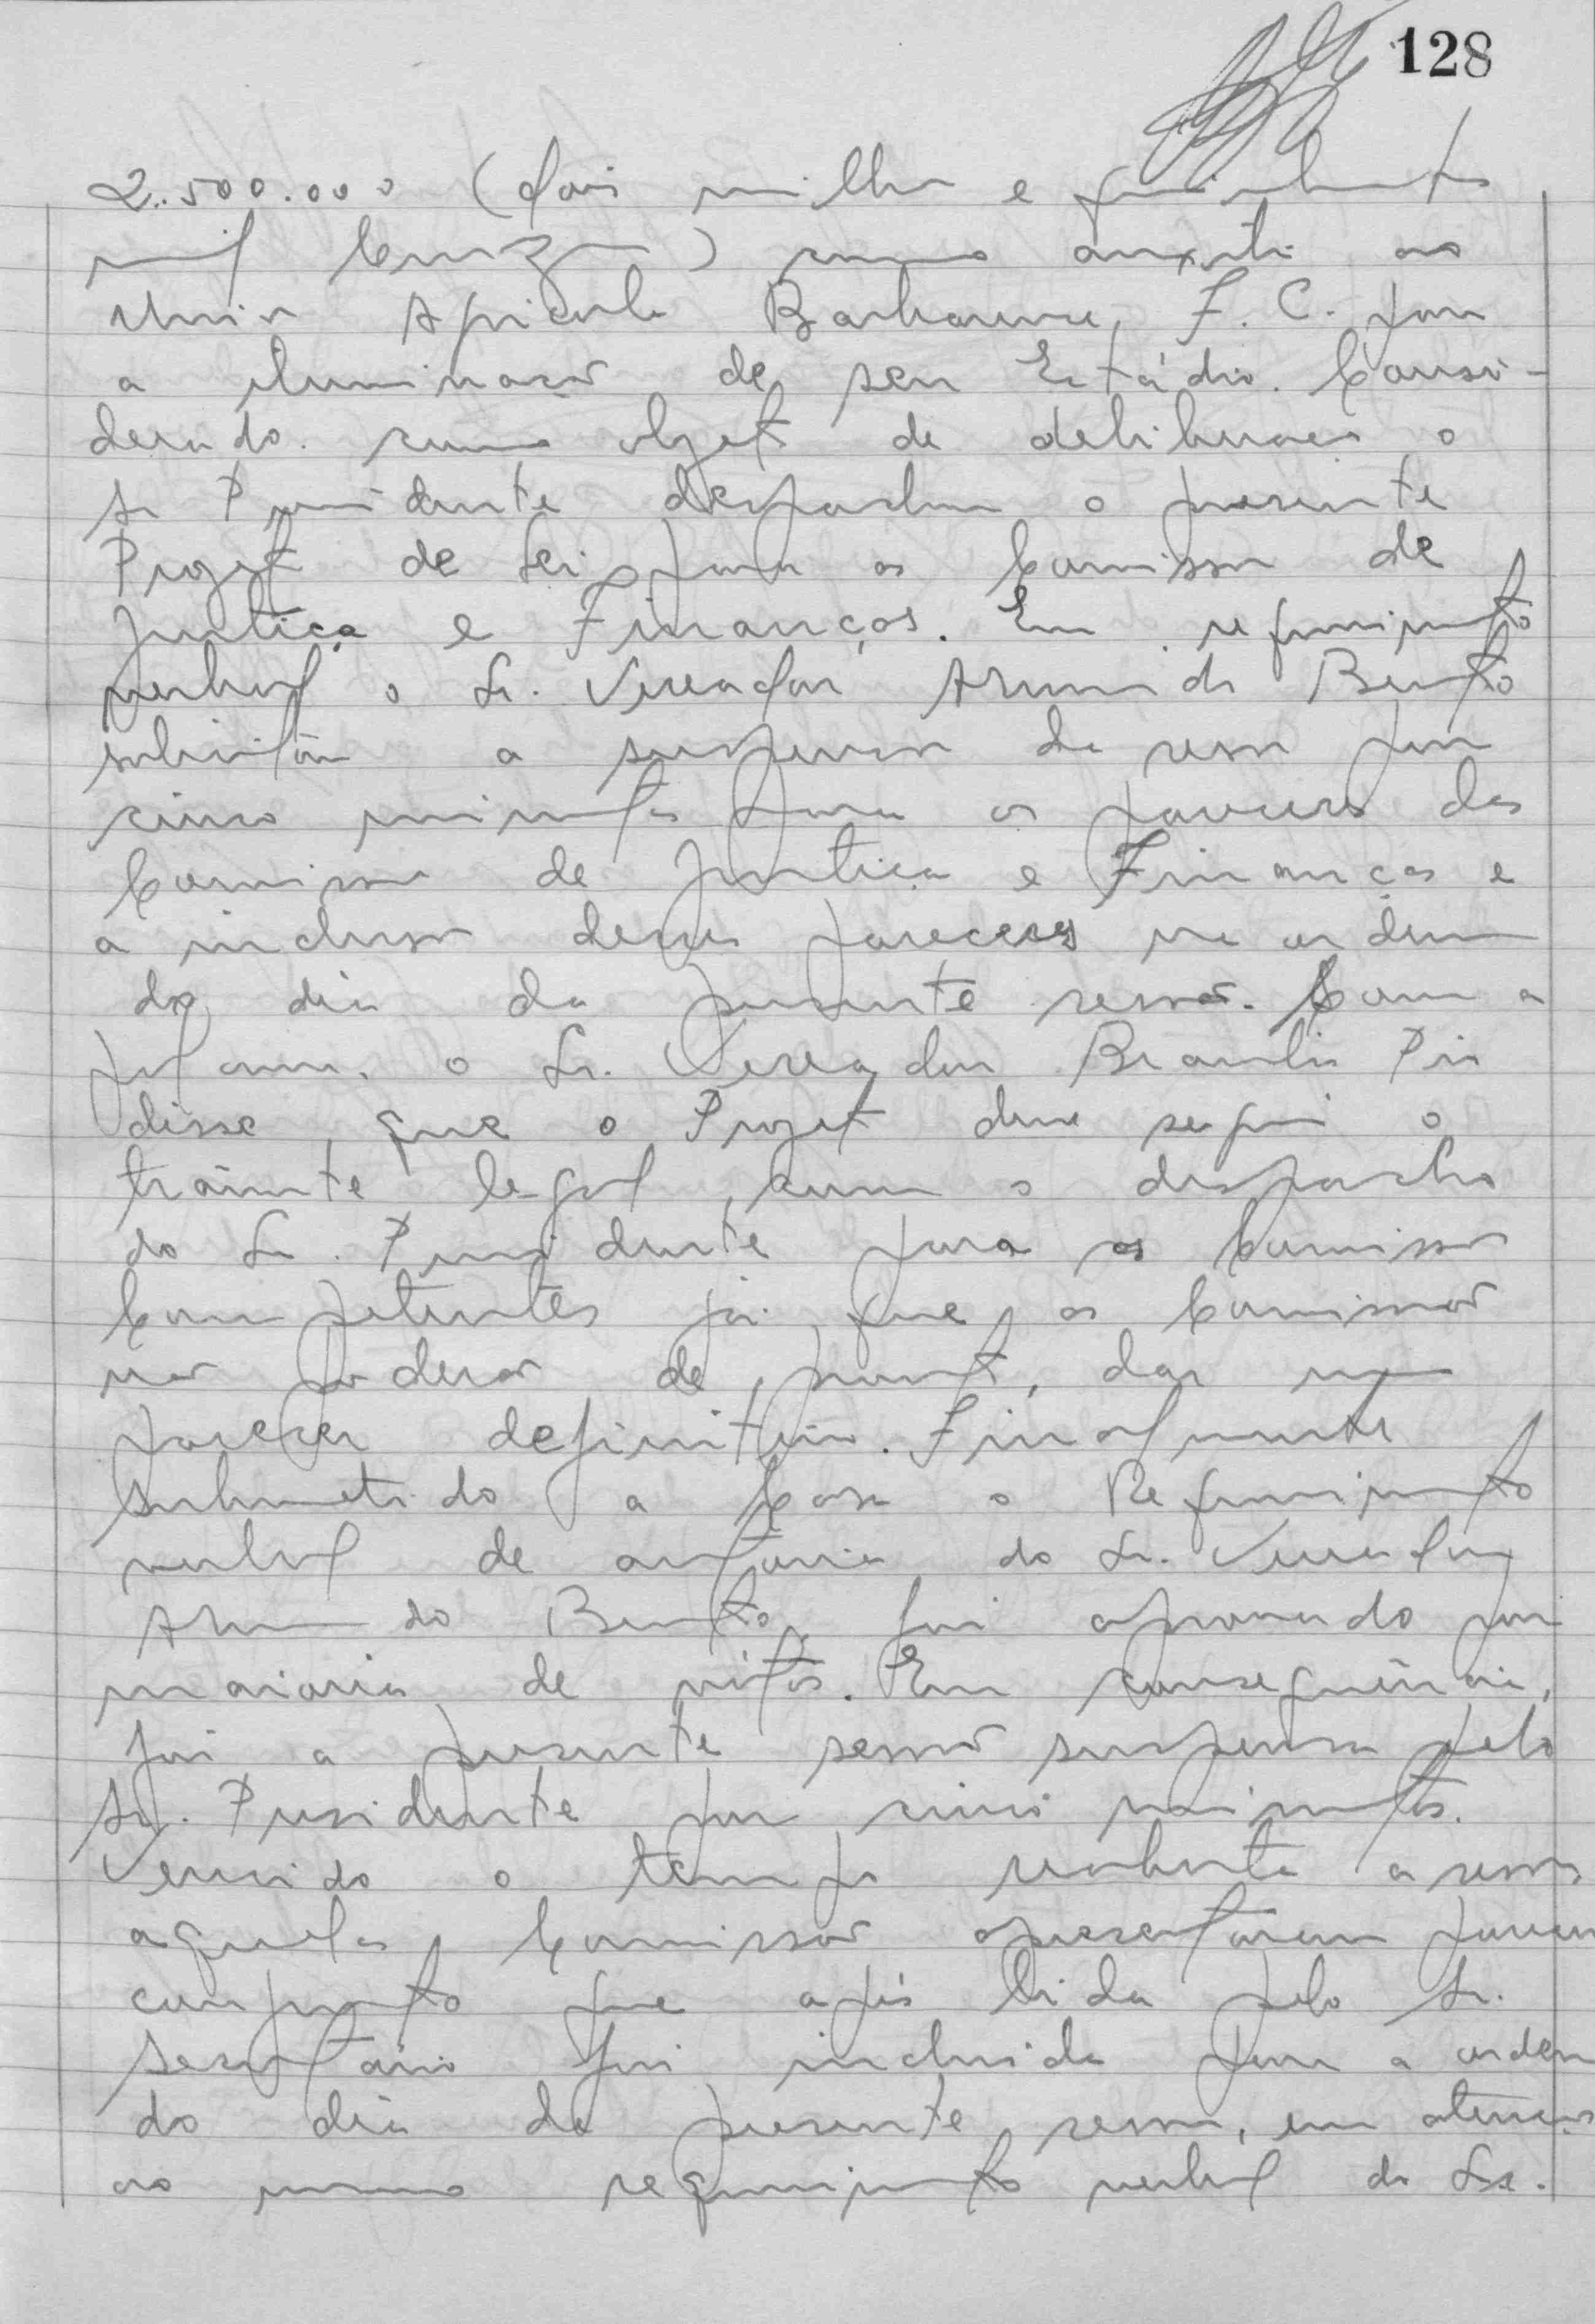 128
2.500.000 (dois milhões e quinhentos
mil Cruzeiros) como auxilio ao
União Agricola Barbarense, F. C. para
a iluminação de seu Estádio. Consi-
derado como objeto de deliberação o
Sr Presidente despachou o presente
Projeto de Lei para as Comissões de
Justiça e Finanças. Em requerimento
verbal o Sr. Vereador Armando Bento
solicitou a suspensão da sessão por
cinco minutos para os pareceres das
Comissões de Justiça e Finanças e
a inclusão desses pareceres na ordem
do dia da presente sessão. Com a
palavra, o Sr. Vereador Braulio Pio
disse, que o Projeto deve seguir o
trâmite legal, com o despacho
do Sr. Presidente para as Comissões
Competentes já que as Comissões
não poderão de pronto, dar um
parecer definitivo. Finalmente
submetido a Casa o Requerimento
verbal de autoria do Sr. Vereador
Armando Bento, foi aprovado por
maioria de votos. Em consequência,
foi a presente sessão suspensa pelo
Sr. Presidente por cinco minutos.
Vencido o tempo reaberta a sessão
aquelas Comissões apresentaram parecer
conjunto que após lida pelo Sr.
Secretário foi incluida para a ordem
do dia da presente sessão, em atenção
ao mesmo requerimento verbal do Sr.